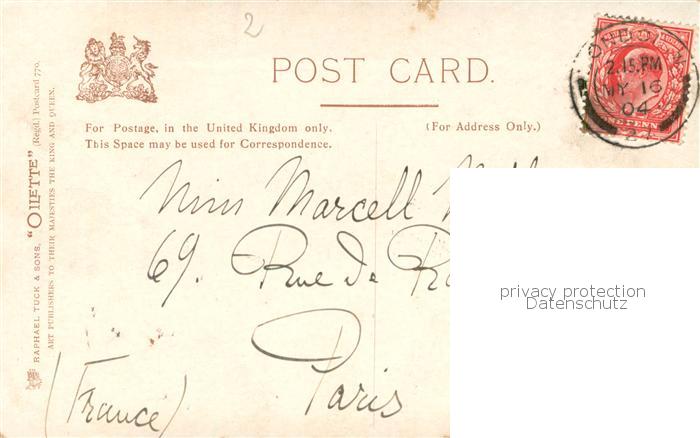 2
POST CARD.
For Postage, in the United Kingdom only.
This Space may be used for Correspondence.
(For Address Only.)
RAPHAEL TUCK & SONS, "OILETTE" (Regd.) Postcard 770.
ART PUBLISHERS TO THEIR MAJESTIES THE KING AND QUEEN.
LONDON
2.15.PM
MY 16
04
ONE PENNY
Miss Marcell
69. Rue de
Paris
(France)
privacy protection
Datenschutz